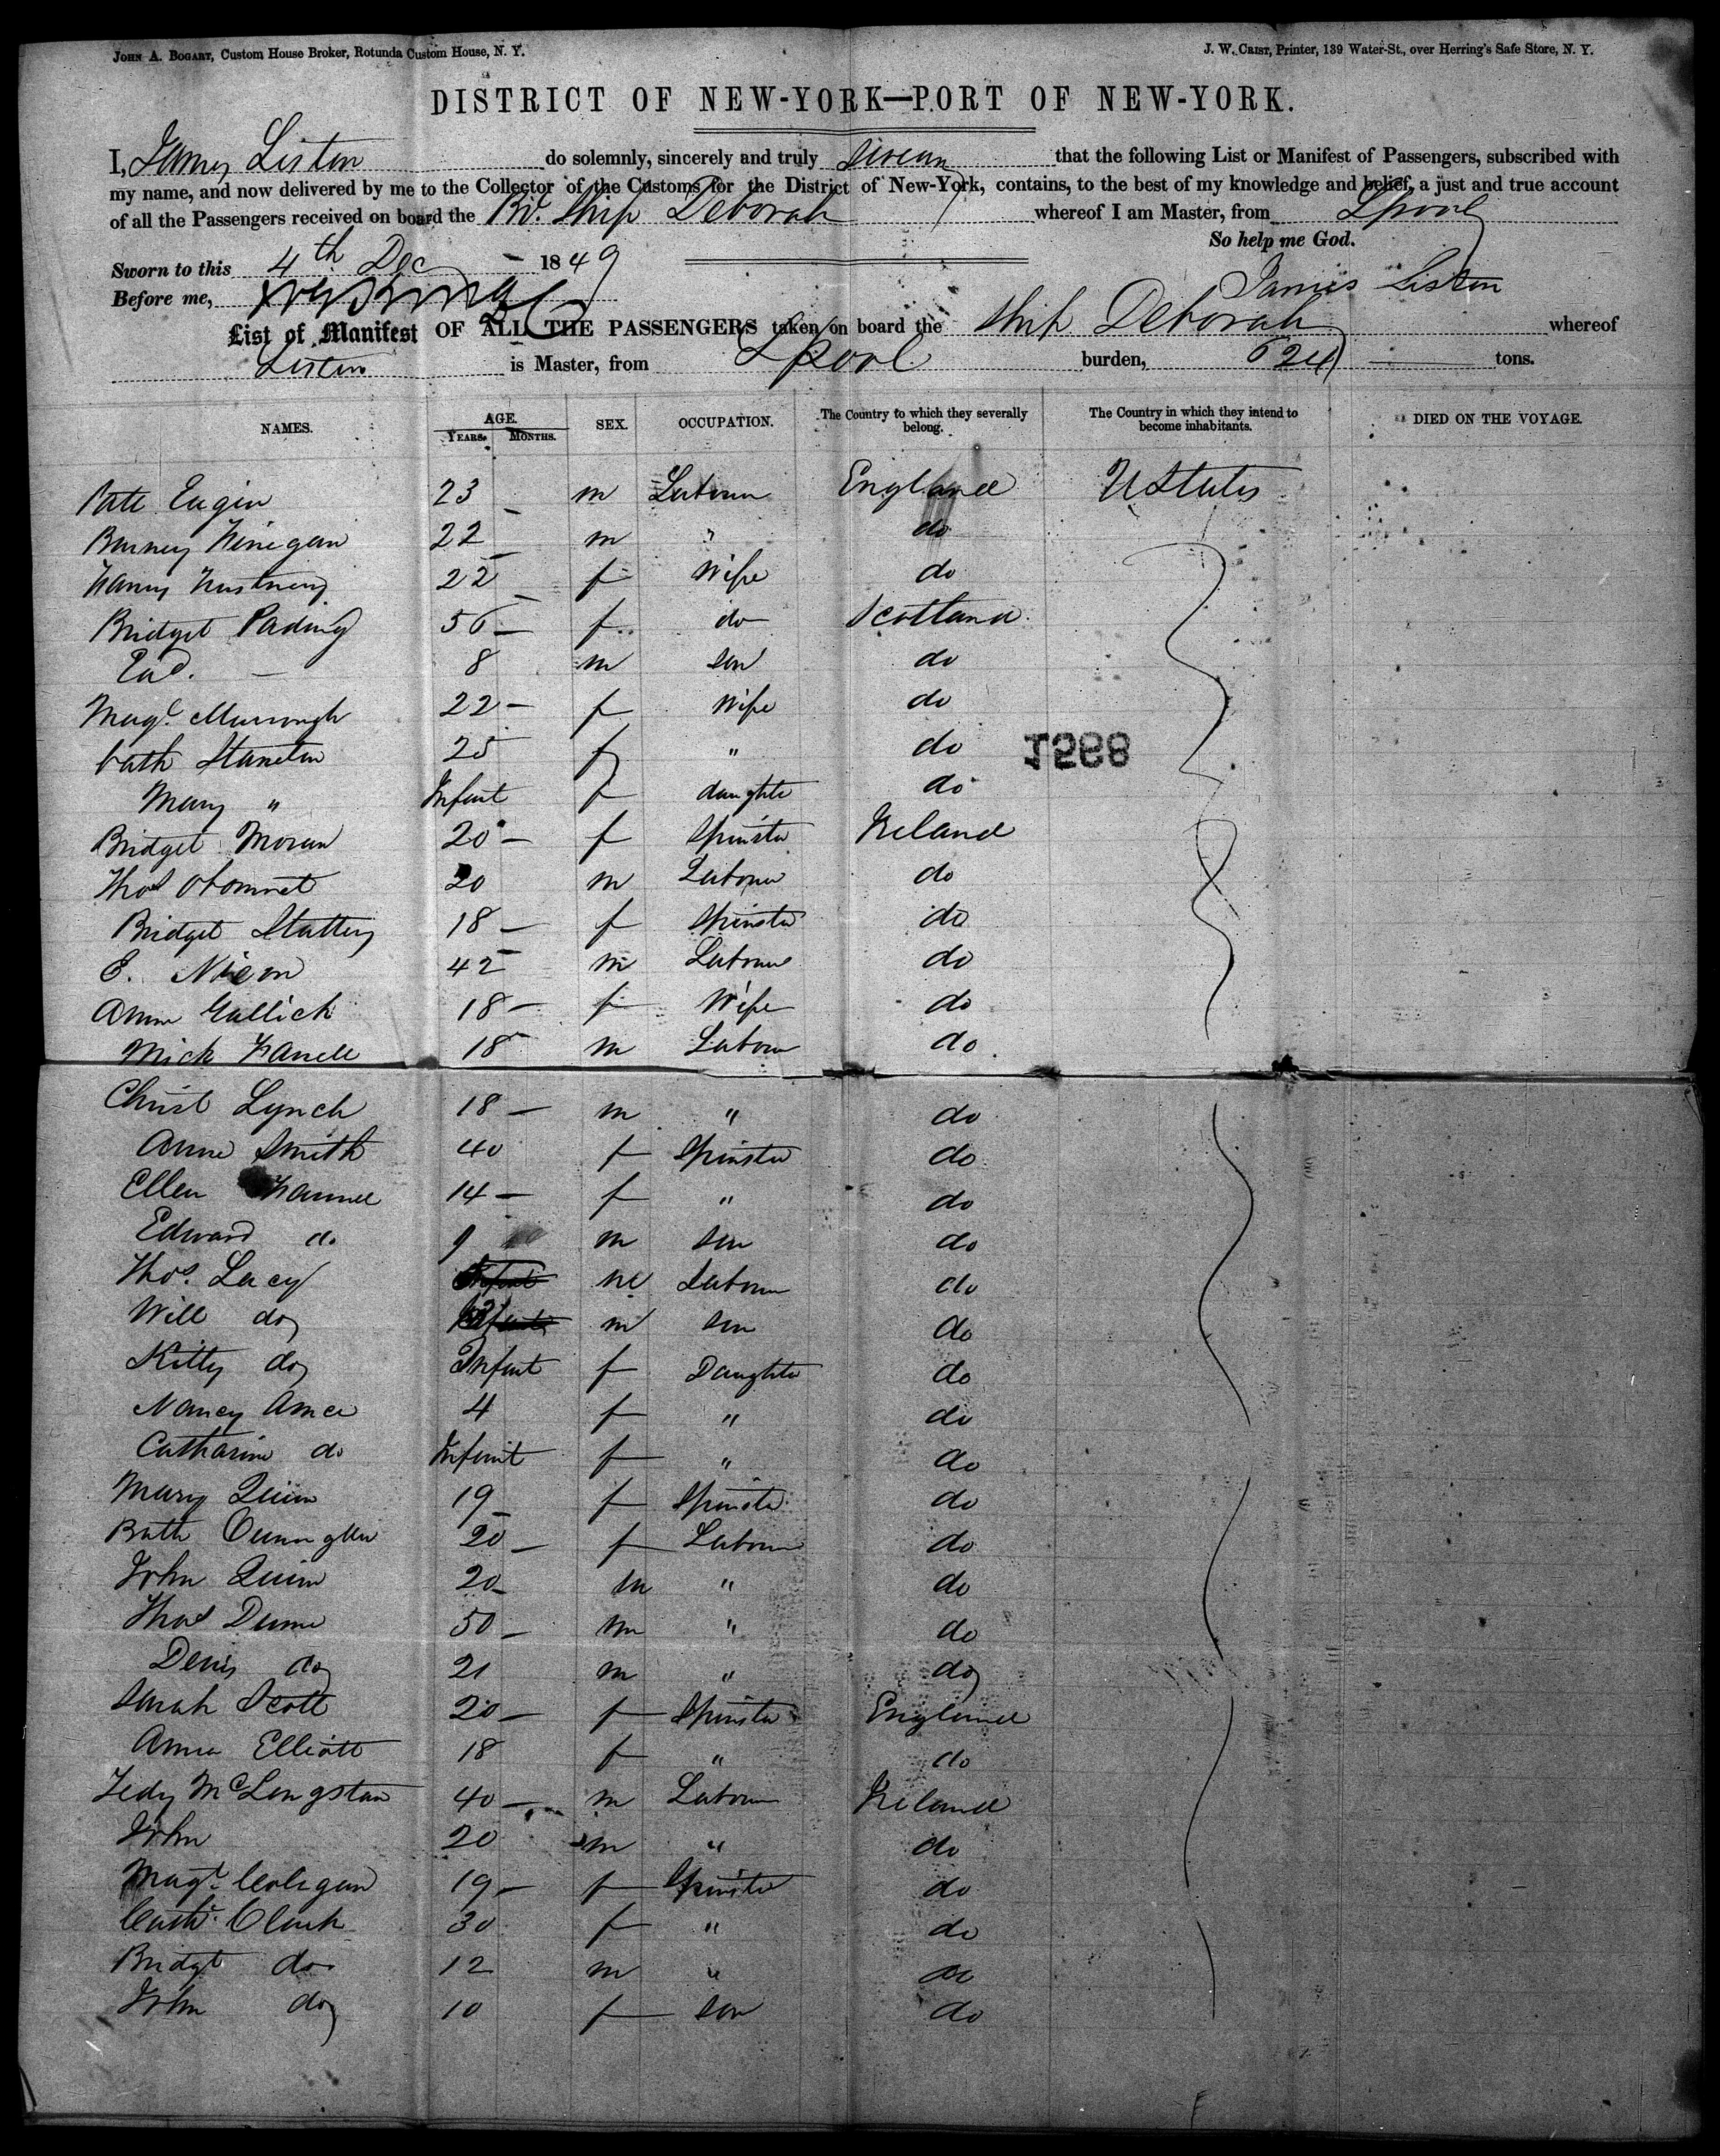 JOHN A. BOGART, Custom House Broker, Rotunda Custom House, N. Y.
J. W. CRIST, Printer, 139 Water-St., over Herring's Safe Store, N. Y.
DISTRICT OF NEW-YORK—PORT OF NEW-YORK.
I, James Liston do solemnly, sincerely and truly swear that the following List or Manifest of Passengers, subscribed with
my name, and now delivered by me to the Collector of the Customs for the District of New-York, contains, to the best of my knowledge and belief, a just and true account
of all the Passengers received on board the Br. Ship Deborah whereof I am Master, from Lpool
So help me God.
Sworn to this 4th Dec 1849
James Liston
Before me,
List of Manifest OF ALL THE PASSENGERS taken on board the Ship Deborah whereof
Liston is Master, from Lpool burden, 624 tons.
NAMES. AGE. SEX. OCCUPATION. The Country to which they severally belong. The Country in which they intend to become inhabitants. DIED ON THE VOYAGE.
YEARS. MONTHS.
Patt Eagin 23 m Labourer England U States
Barney Finegan 22 m " do
22 f Wife do
Bridget 56 f do Scotland
8 m Son do
Magt. Murrough 22 f Wife do
Cath Stanton 25 f " do
1568
Mary " Infant f daughter do
Bridget Moran 20 f Spinster Ireland
Thos 20 m Labourer do
Bridget Slattery 18 f Spinster do
E. Nixon 42 m Labourer do
Ann Gallick 18 f Wife do
Mick Farrell 18 m Labour do
Christ Lynch 18 m " do
Anne Smith 40 f Spinster do
Ellen 14 f " do
Edward do 9 m Son do
Thos. Lacy m Labour do
Will do m Son do
Kitty do Infant f Daughter do
Nancy 4 f " do
Catharine do Infant f " do
Mary Quinn 19 f Spinster do
20 f Labour do
John Quinn 20 m " do
Thos Dunne 50 m " do
Denis do 21 m " do
Sarah Scott 20 f Spinster England
Anna Elliott 18 f " do
Tedy McLengstan 40 m Labour Ireland
John 20 m " do
Magt. Colegan 19 f Spinster do
Cath. Clark 30 f " do
Bridgt do 12 m " do
John do 10 f Son do